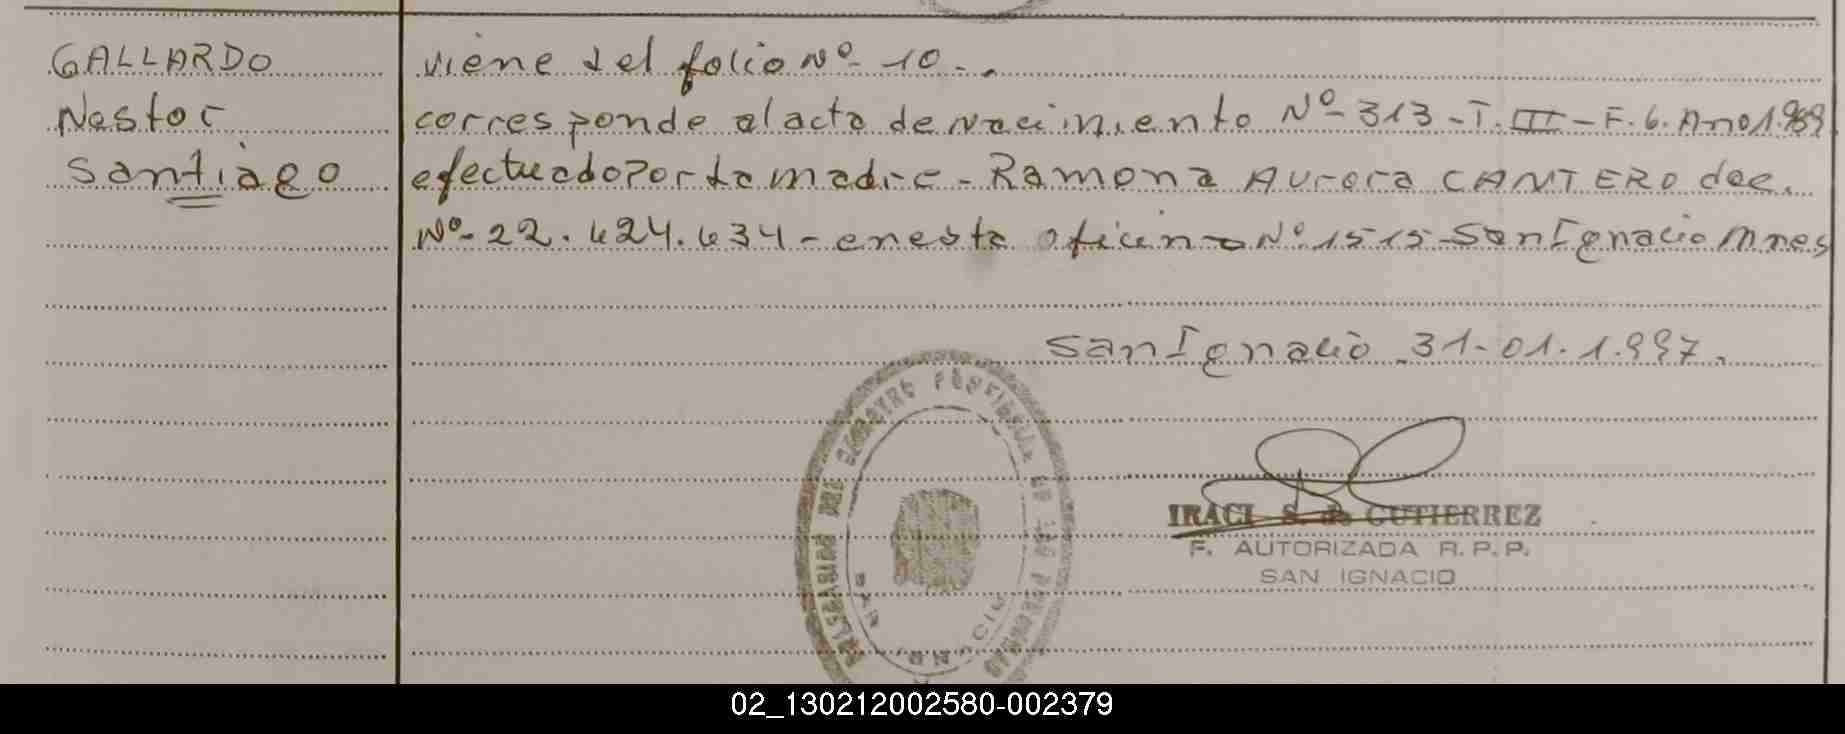 GALLARDO
Nestor
Santiago
viene del folio Nº- 10-.
corresponde al acta de nacimiento Nº-313-T.III-F.6. Ano 1.989
efectuado por la madre - Ramona Aurora CANTERO doc.
Nº-22.424.434- en esta oficina Nº 1515-San Ignacio Mnes
San Ignacio 31-01.1.997.
IRACI S. de GUTIERREZ
F. AUTORIZADA R.P.P.
SAN IGNACIO
REGISTRO PROVINCIAL DE LAS PERSONAS
SAN IGNACIO
02_130212002580-002379